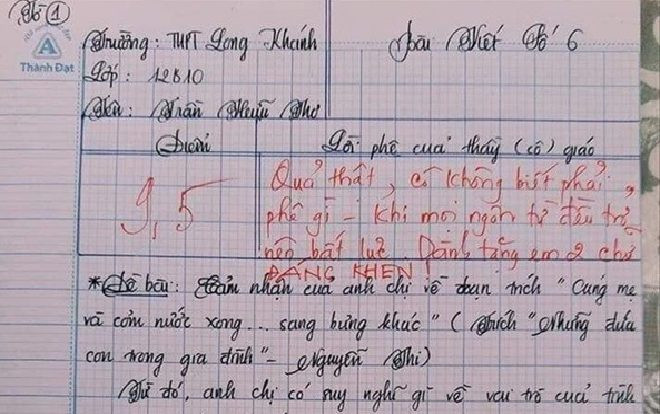 Tờ 1
Thành Đạt
Trường: THPT Long Khánh
Bài Viết Số 6
Lớp: 12B10
Tên: Trần Thơ
Điểm
Lời phê của thầy (cô) giáo
9,5
Quả thật, cô không biết phải
phê gì - khi mọi ngôn từ đều trở
nên bất lực. Dành tặng em 2 chữ
ĐÁNG KHEN!
* Đề bài: Cảm nhận của anh chị về đoạn trích "Cúng mẹ
và cơm nước xong... sang bưng khác" (Trích "Những đứa
con trong gia đình" - Nguyễn Thi)
Từ đó, anh chị có suy nghĩ gì về vai trò của tình